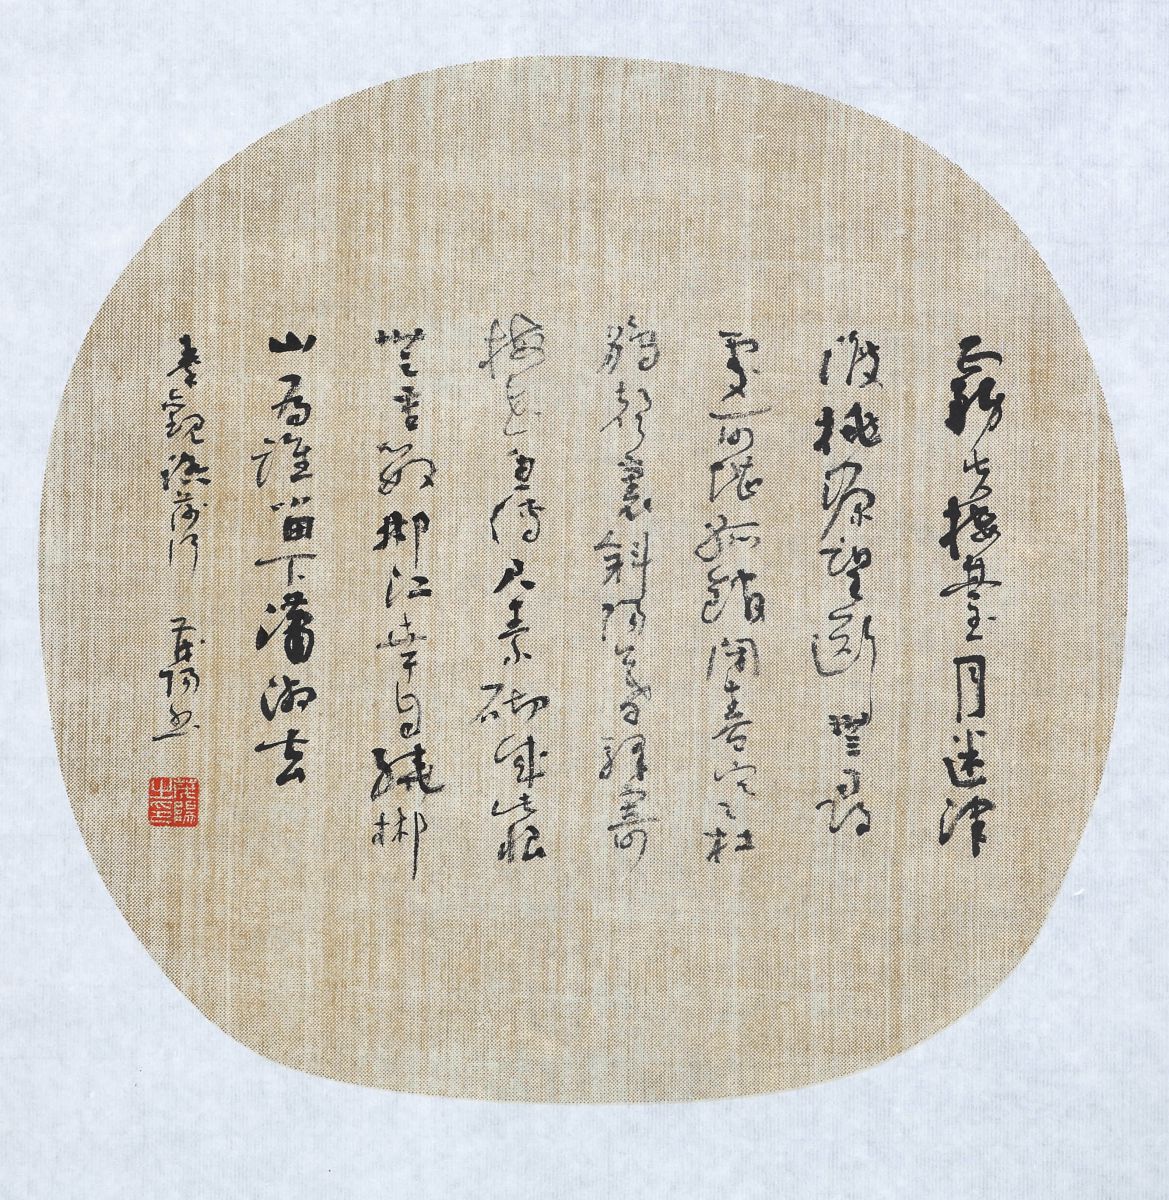 霧失樓臺月迷津
渡桃源望斷無尋
處可堪孤館閉春寒杜
鵑聲裏斜陽暮驛寄
梅花魚傳尺素砌成此恨
無重數郴江幸自繞郴
山為誰留下瀟湘去
秦觀踏莎行 茂陽書
茂陽之印